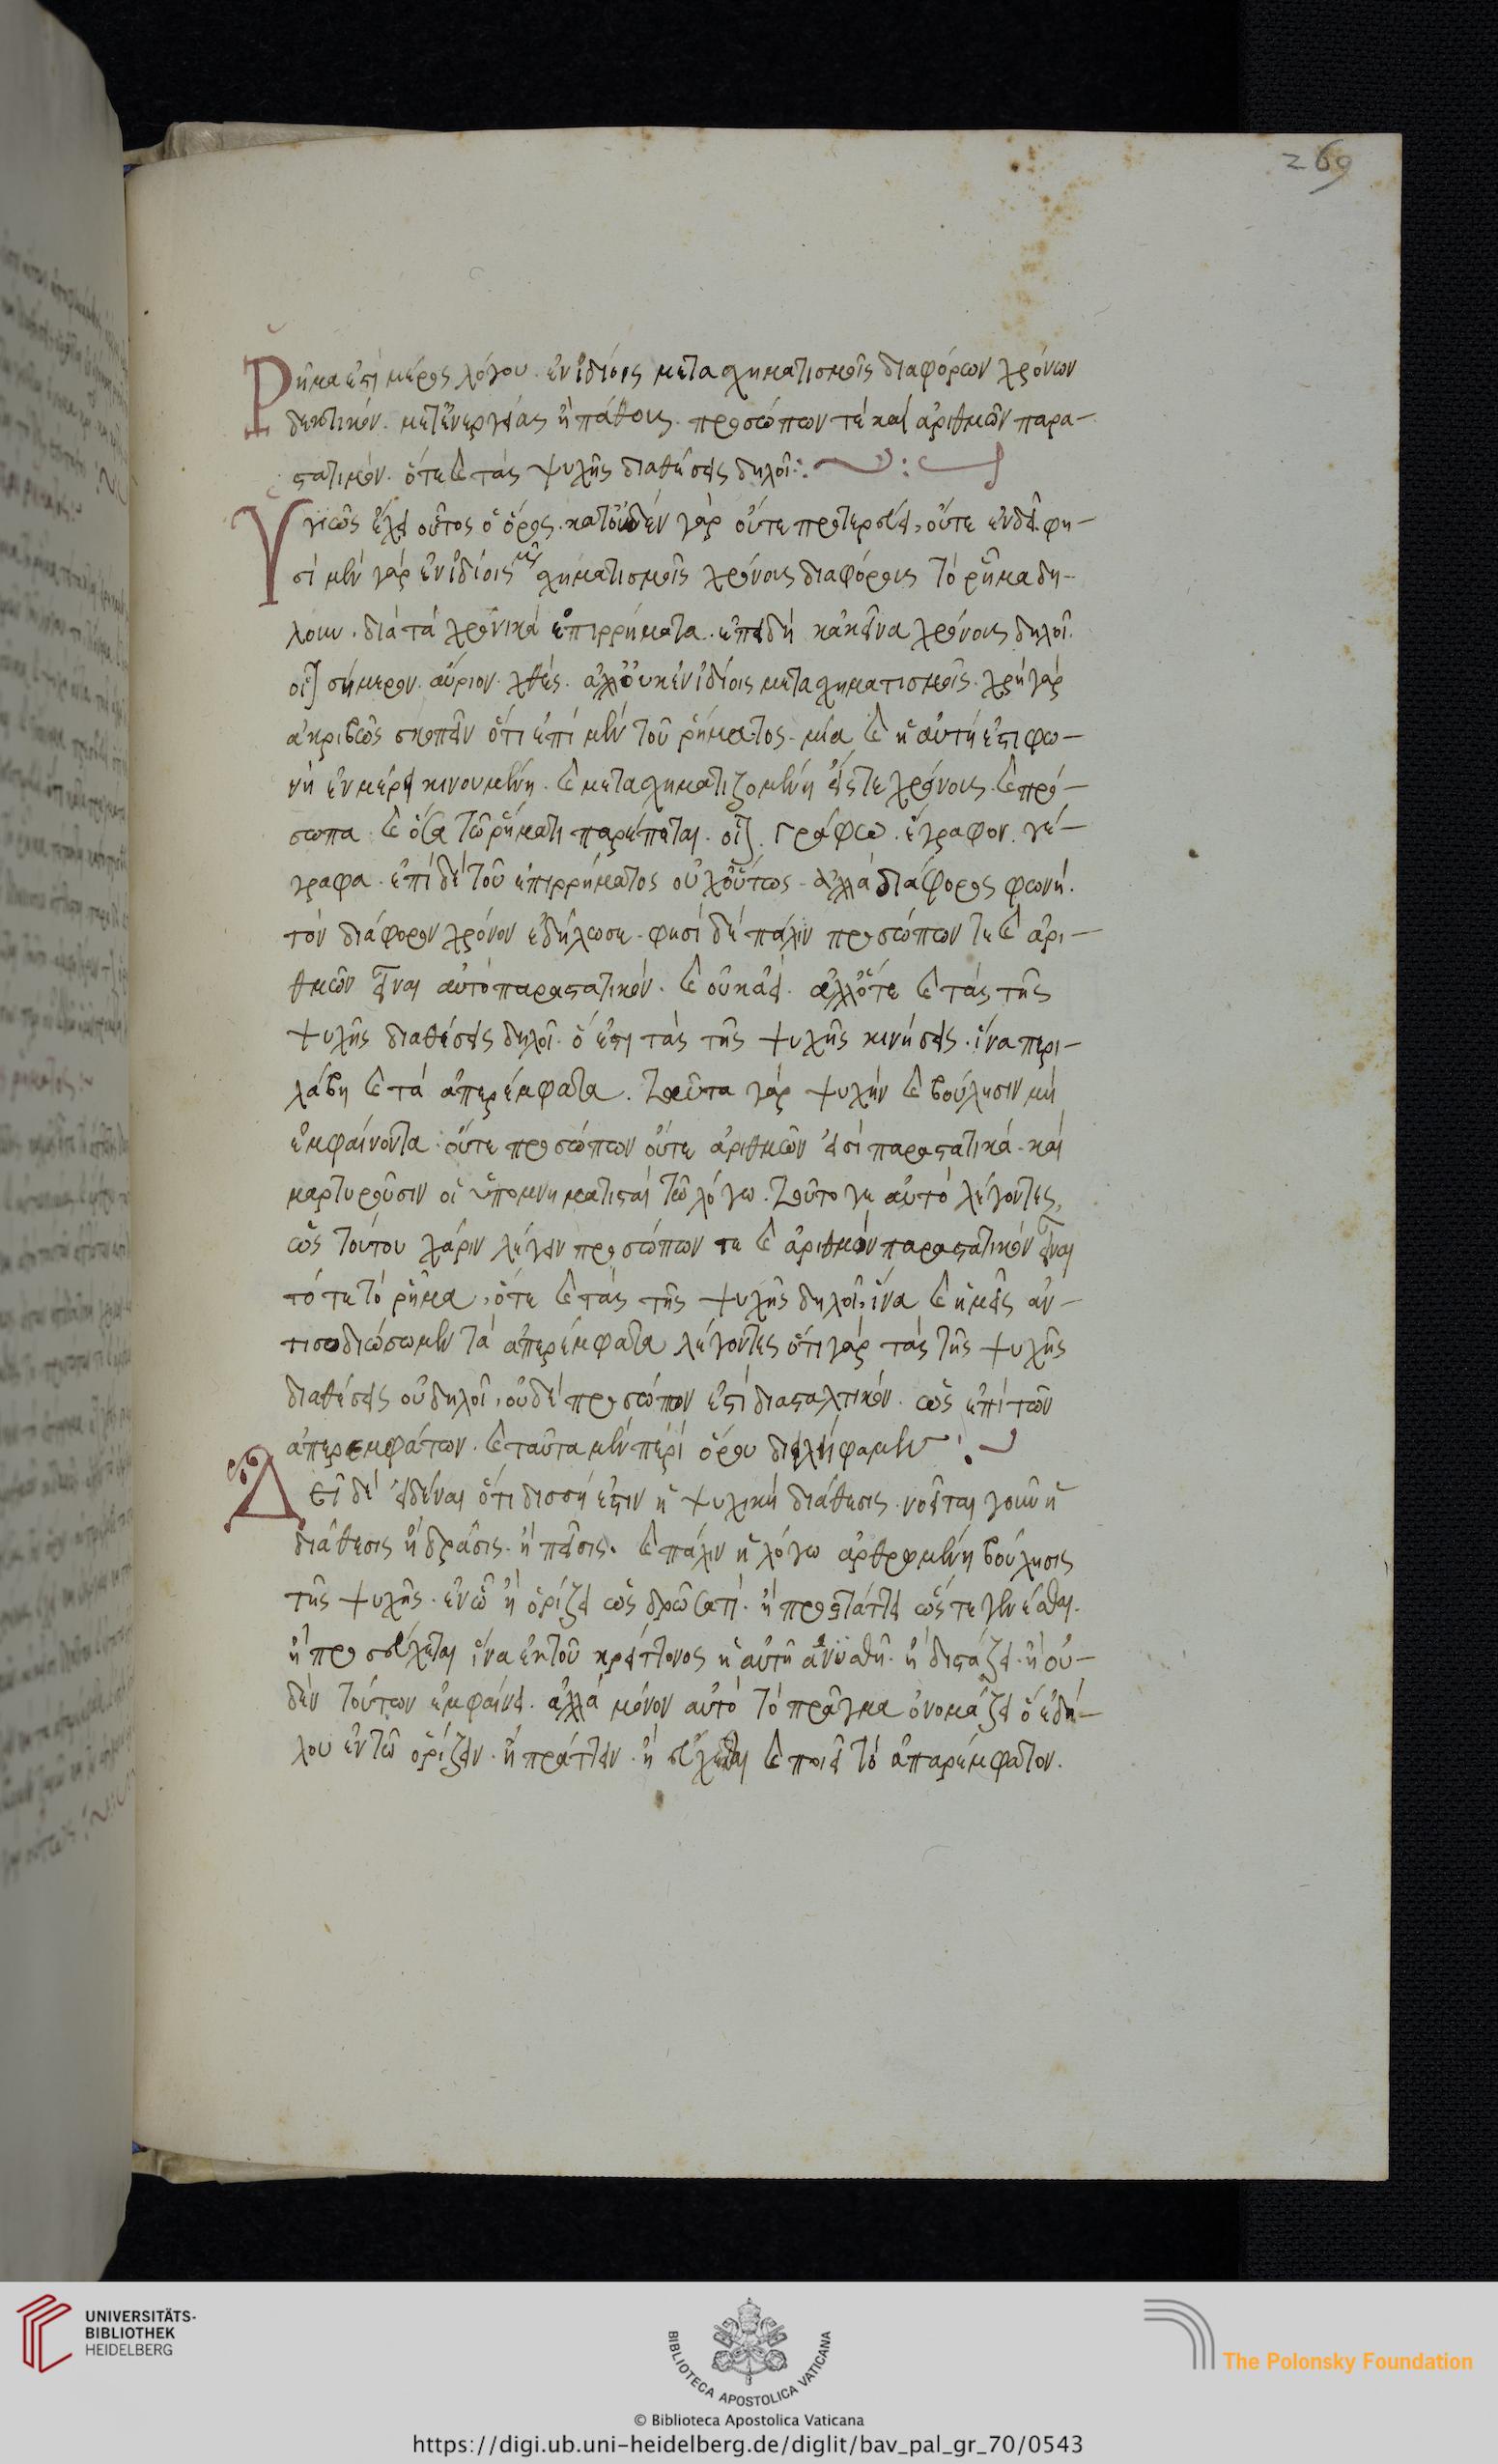 269
Ῥῆμα ἐστὶ μέρος λόγου. ἐν ἰδίοις μετασχηματισμοῖς διαφόρων χρόνων
δεκτικόν. μετ' ἐνεργείας ἢ πάθους. προσώπων τὲ καὶ ἀριθμῶν παρα-
στατικόν. ὅτε καὶ τὰς ψυχῆς διαθέσεις δηλοῖ:
Ὑγιῶς ἔχει οὗτος ὁ ὅρος. κατ' οὐδὲν γὰρ οὔτε προτερεύει, οὔτε ἐνδεῖ. φη-
σὶ μὲν γὰρ ἐν ἰδίοις μετασχηματισμοῖς χρόνους διαφόρους τὸ ῥῆμα δη-
λοῦν. διὰ τὰ χρονικὰ ἐπιρρήματα. ἐπειδὴ κἀκεῖνα χρόνους δηλοῖ.
οἷον σήμερον. αὔριον. χθές. ἀλλ' οὐκ ἐν ἰδίοις μετασχηματισμοῖς. χρὴ γὰρ
ἀκριβῶς σκοπεῖν ὅτι ἐπὶ μὲν τοῦ ῥήματος. μία καὶ ἡ αὐτή ἐστι φω-
νὴ ἐν μέρει κινουμένη. καὶ μετασχηματιζομένη εἴς τε χρόνους. καὶ πρό-
σωπα. καὶ ὅσα τῷ ῥήματι παρέπεται. οἷον. γράφω. ἔγραφον. γέ-
γραφα. ἐπὶ δὲ τοῦ ἐπιρρήματος οὐχ οὕτως. ἀλλὰ διάφορος φωνὴ.
τὸν διάφορον χρόνον ἐδήλωσε. φησὶ δὲ πάλιν προσώπων τε καὶ ἀρι-
θμῶν εἶναι αὐτὸ παραστατικόν. καὶ οὐκ ἀεί. ἀλλ' ὅτε καὶ τὰς τῆς
ψυχῆς διαθέσεις δηλοῖ. ὅ ἐστι τὰς τῆς ψυχῆς κινήσεις. ἵνα περι-
λάβῃ καὶ τὰ ἀπερέμφατα. ταῦτα γὰρ ψυχὴν καὶ βούλησιν μὴ
ἐμφαίνοντα. οὔτε προσώπων οὔτε ἀριθμῶν εἰσὶ παραστατικά. καὶ
μαρτυροῦσιν οἱ ὑπομνηματισταὶ τῷ λόγῳ. τοῦτο γε αὐτὸ λέγοντες,
ὡς τούτου χάριν λέγειν προσώπων τε καὶ ἀριθμῶν παραστατικὸν εἶναι
τότε τὸ ῥῆμα, ὅτε καὶ τὰς τῆς ψυχῆς δηλοῖ, ἵνα καὶ ἡμεῖς ἀν-
τισοδιώσωμεν τὰ ἀπερέμφατα λέγοντες ὅτι γὰρ τὰς τῆς ψυχῆς
διαθέσεις οὐ δηλοῖ, οὐδὲ προσώπον ἐστὶ διασταλτικόν. ὡς ἐπὶ τῶν
ἀπερεμφάτων. καὶ ταῦτα μὲν περὶ ὅρου διειλήφαμεν:
Δεῖ δὲ εἰδέναι ὅτι δισσή ἐστιν ἡ ψυχικὴ διάθεσις. νοεῖται γοῦν ἡ
διάθεσις ἢ δρᾶσις. ἢ πεῖσις. καὶ πάλιν ἡ λόγῳ ἀρθρουμένη βούλησις
τῆς ψυχῆς. ἐν ᾧ ἢ ὁρίζει ὡς δρῶσα τί. ἢ προστάττει ὥστε γενέσθαι.
ἢ προσεύχεται ἵνα ἐκ τοῦ κρείττονος ἡ αὐτῇ ἀνυσθῇ. ἢ διστάζει. ἢ οὐ-
δὲν τούτων ἐμφαίνει. ἀλλὰ μόνον αὐτὸ τὸ πρᾶγμα ὀνομάζει ὃ ἐδή-
λου ἐν τῷ ὁρίζειν. ἢ πράττειν. ἢ εὔχεται καὶ ποιεῖ τὸ ἀπαρέμφατον.
UNIVERSITÄTS-
BIBLIOTHEK
HEIDELBERG
BIBLIOTECA APOSTOLICA VATICANA
The Polonsky Foundation
© Biblioteca Apostolica Vaticana
https://digi.ub.uni-heidelberg.de/diglit/bav_pal_gr_70/0543